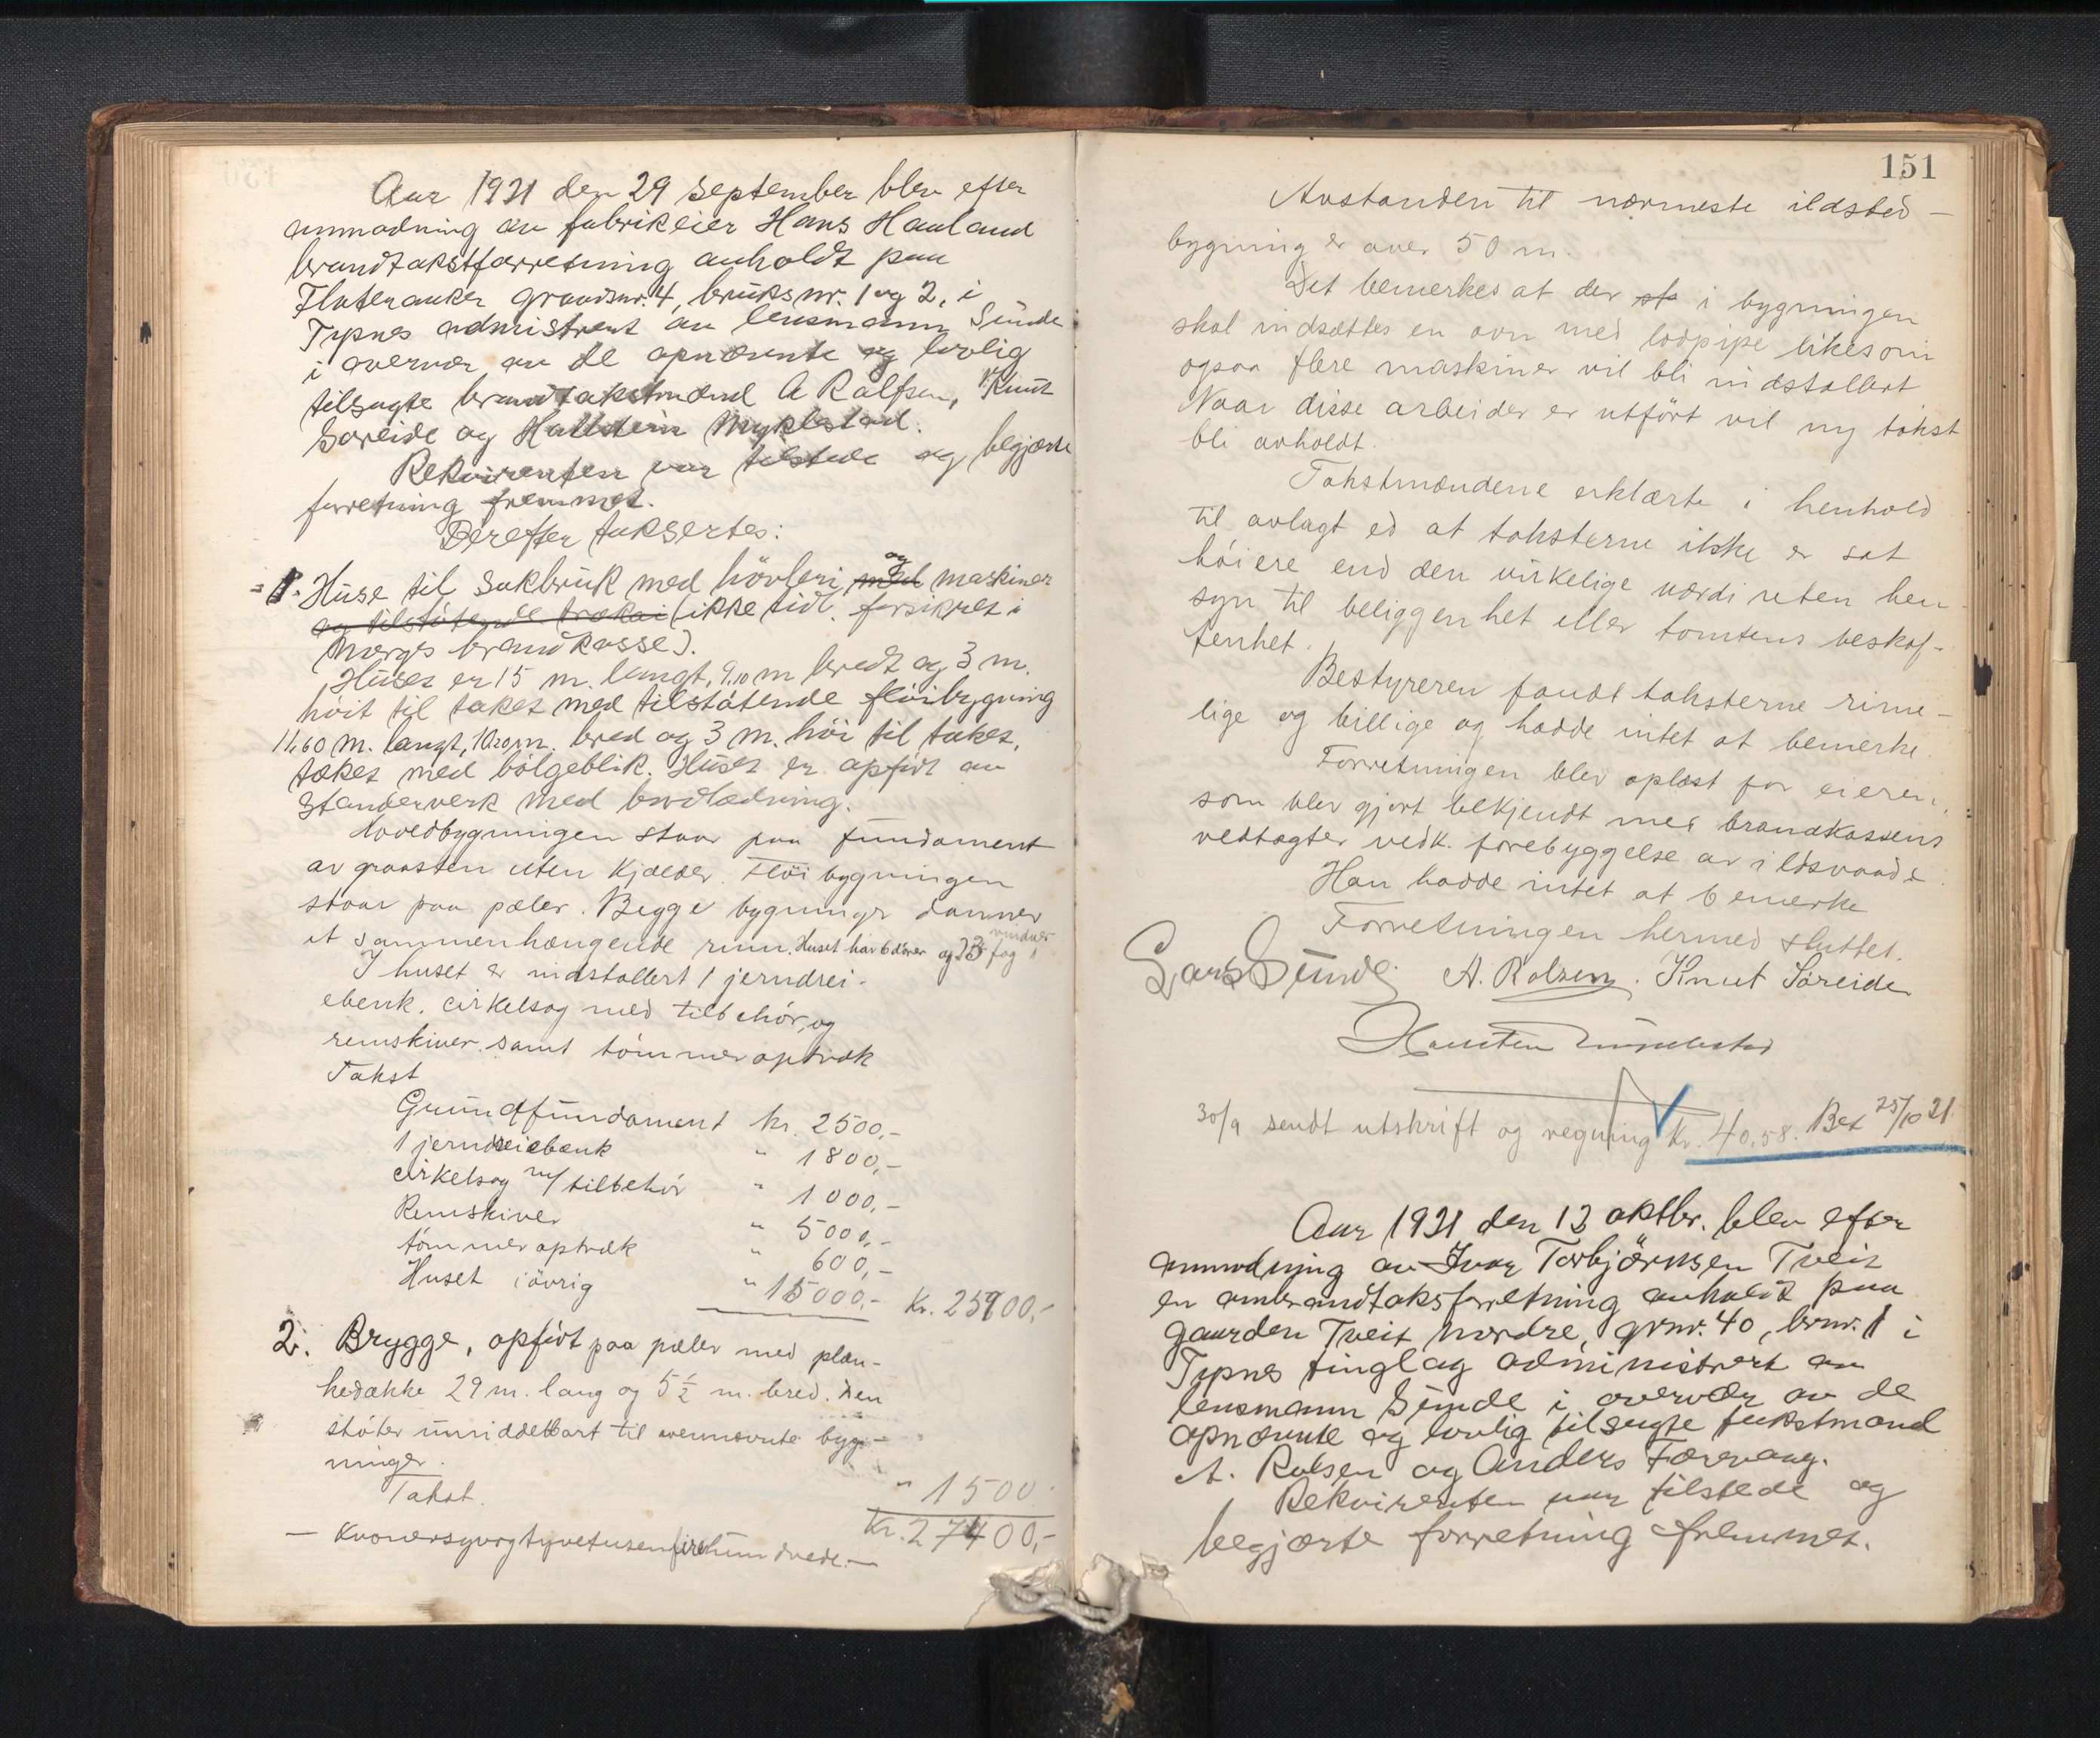 Aar 1921 den 29 september blev efter
anmodning av fabrikeier Hans Hauland
brandtakstforretning avholdt paa
Flateraaker grundnr. 4, bruksnr. 1 og 2, i
Tysnes admistrert av lensmann Sunde
i overvær av de opnævnte og lovlig
tilsagte brandtakstmænd A Rolfsen, Knut
Soreide og Hallstein Myklestad.
Rekvirenten var tilstede og begjærte
forretning fremmet.
Derefter taksertes:
1. Huse til sakbruk med hövleri med og maskiner
og tilstötende trækai (ikke tidl. forsikret i
Norges brandkasse).
Huset er 15 m. langt, 9,10 m bredt og 3 m.
höit til taket med tilstötende flöibygning
11,60 m. langt, 10,20 m. bred og 3 m. höi til taket,
tækket med bölgeblik. Huset er opfört av
standerverk med bordklædning.
Hovedbygningen staar paa fundament
av graasten uten kjælder. Flöibygningen
staar paa pæler. Begge bygninger danner
et sammenhængende rum. Huset har 6 dörer og 23 fag vinduer
I huset er indstallert 1 jerndrei-
ebenk. cirkelsag med tilbehör, og
remskiver samt tömmeroptræk
Takst
Grundfundament kr. 2500,-
1 jerndreiebænk " 1800,-
cirkelsag m/tilbehör " 1000,-
Remskiver " 5000,-
tömmeroptræk " 600,-
Huset iövrig " 15000,- Kr. 25900,-
2. Brygge, opfört paa pæler med plan-
kedække 29 m. lang og 5 ½ m. bred. Den
stöter umiddelbart til ovennevnte byg-
ninger.
Takst. " 1500.
Kr. 27400,-
— Kronersyvogtyvetusenfirehundrede. —
151
Avstanden til nærmeste ildsted-
bygning er over 50 m.
Det bemerkes at der sta i bygningen
skal indsættes en ovn med lodpipe likesom
ogsaa flere maskiner vil bli indstallert.
Naar disse arbeider er utfört vil ny takst
bli avholdt.
Takstmændene erklærte i henhold
til avlagt ed at taksterne ikke er sat
höiere end den virkelige værdi uten hen-
syn til beliggenhet eller tomtens beskaf-
fenhet.
Bestyreren fandt taksterne rime-
lige og billige og hadde intet at bemerke.
Forretningen blev oplæst for eieren,
som blev gjort bekjendt med brandkassens
vedtægter vedk. forebyggelse av ildsvaade.
Han hadde intet at bemerke
Forretningen hermed sluttet.
Lars Sunde. A. Rolsen. Knut Söreide
Hallstein Myklestad
30/9 sendt utskrift og regning Kr. 40.58. Bet 25/10 21.
Aar 1921 den 13 oktbr. blev efter
anmodning av Ivar Torbjörnsen Tveit
en ombrandtaksforretning avholdt paa
gaarden Tveit Nordre, grnr. 40, brnr. 1 i
Tysnes tinglag administrert av
lensmann Sunde i overvær av de
opnævnte og lovlig tilsagte takstmænd
A. Rolsen og Anders Færevaag.
Rekvirenten var tilstede og
begjærte forretning fremmet.